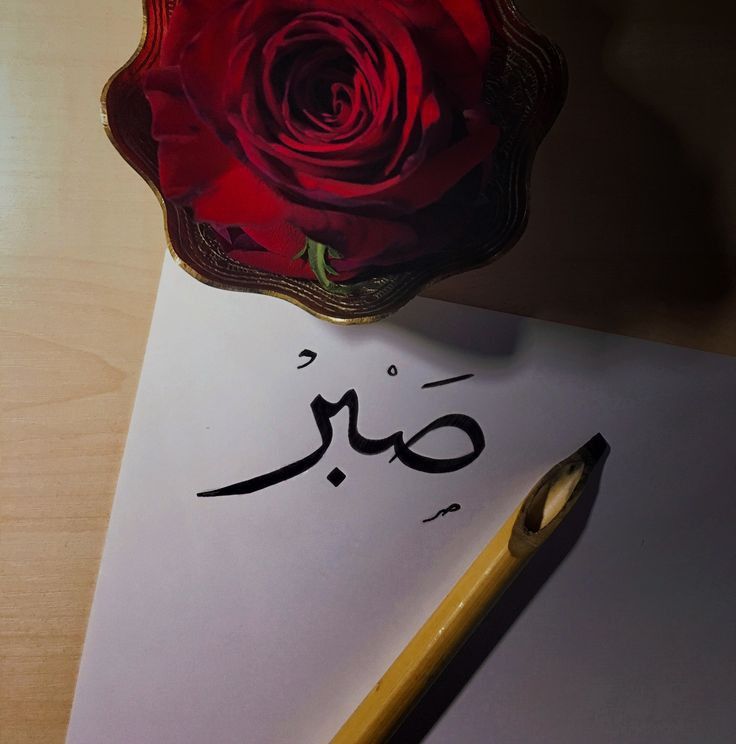 صَبْرْ